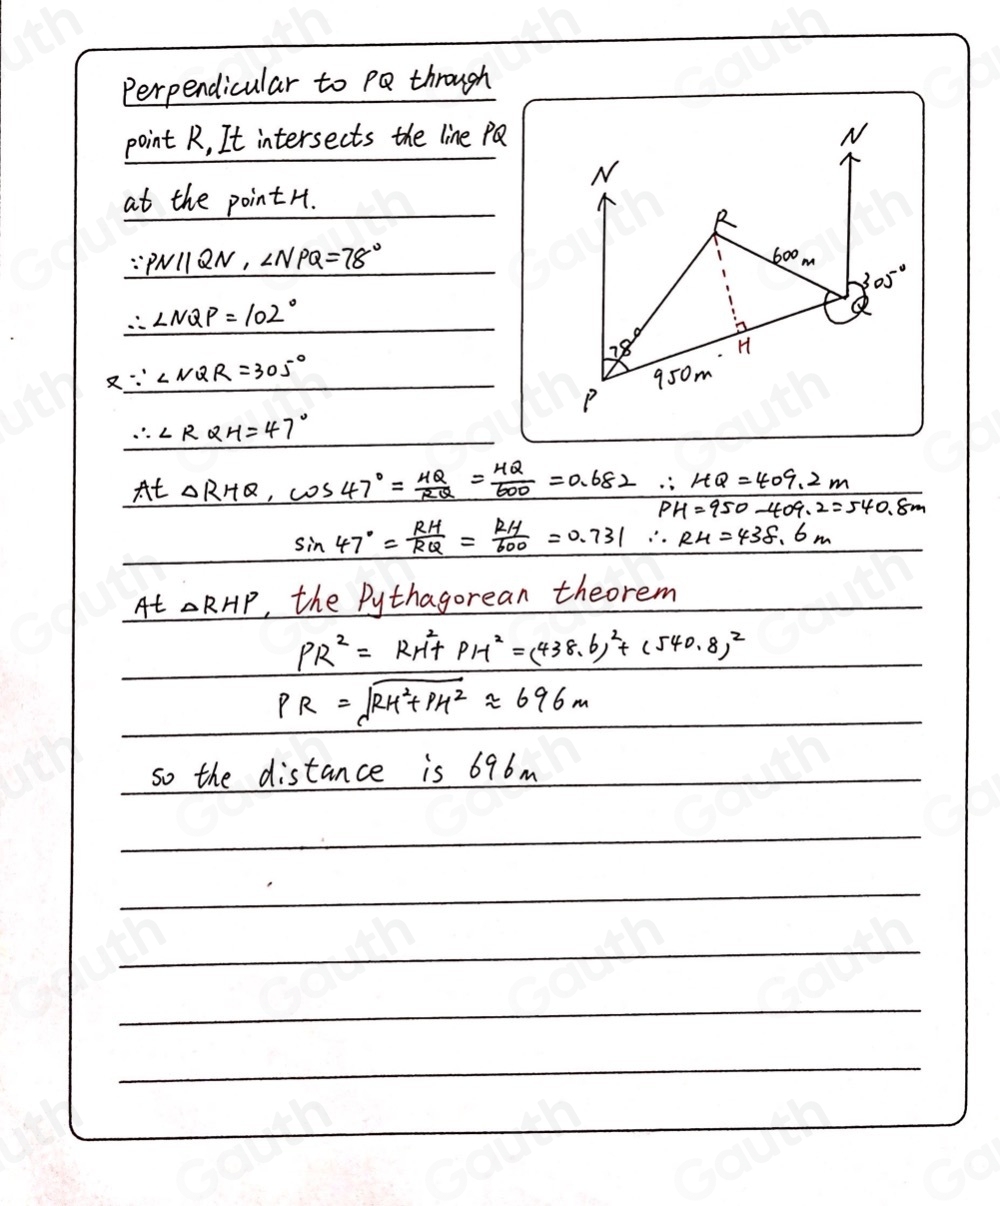 Perpendicular to PQ through
point R, It intersects the line PQ
at the point H.
∵PN∥QN, ∠NPQ=78°
∴∠NQP=102°
又∵∠NQR=305°
∴∠RQH=47°
N
N
R
600m
305°
Q
78°
H
950m
P
At △RHQ, cos47°=HQ/RQ=HQ/600=0.682 ∴ HQ=409.2m
PH=950-409.2=540.8m
sin47°=RH/RQ=RH/600=0.731 ∴ RH=438.6m
At △RHP, the Pythagorean theorem
PR²=RH²+PH²=(438.6)²+(540.8)²
PR=√RH²+PH²≈696m
so the distance is 696m
Gauth